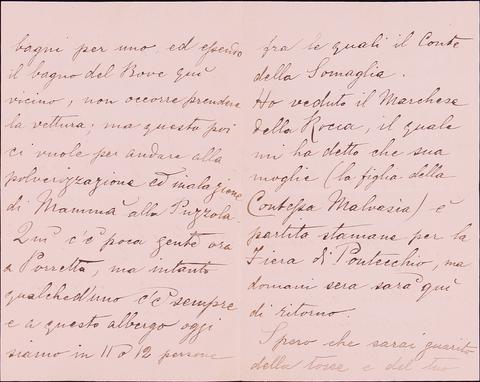 bagni per uno, ed essendo
il bagno del Bove qui
vicino, non occorre prendere
la vettura; ma questa poi
ci vuole per andare alla
polverizzazione ed inalazione
di Mammà alla Puzzola.
Qui c'è poca gente ora
a Porretta, ma intanto
qualched'uno c'è sempre
e a questo albergo oggi
siamo in 11 o 12 persone
fra le quali il Conte
della Somaglia.
Ho veduto il Marchese
della Rocca, il quale
mi ha detto che sua
moglie (la figlia della
Contessa Malvasia) è
partita stamane per la
Fiera di Pontecchio, ma
domani sera sarà qui
di ritorno.
Spero che sarai guarito
della tosse e del tuo